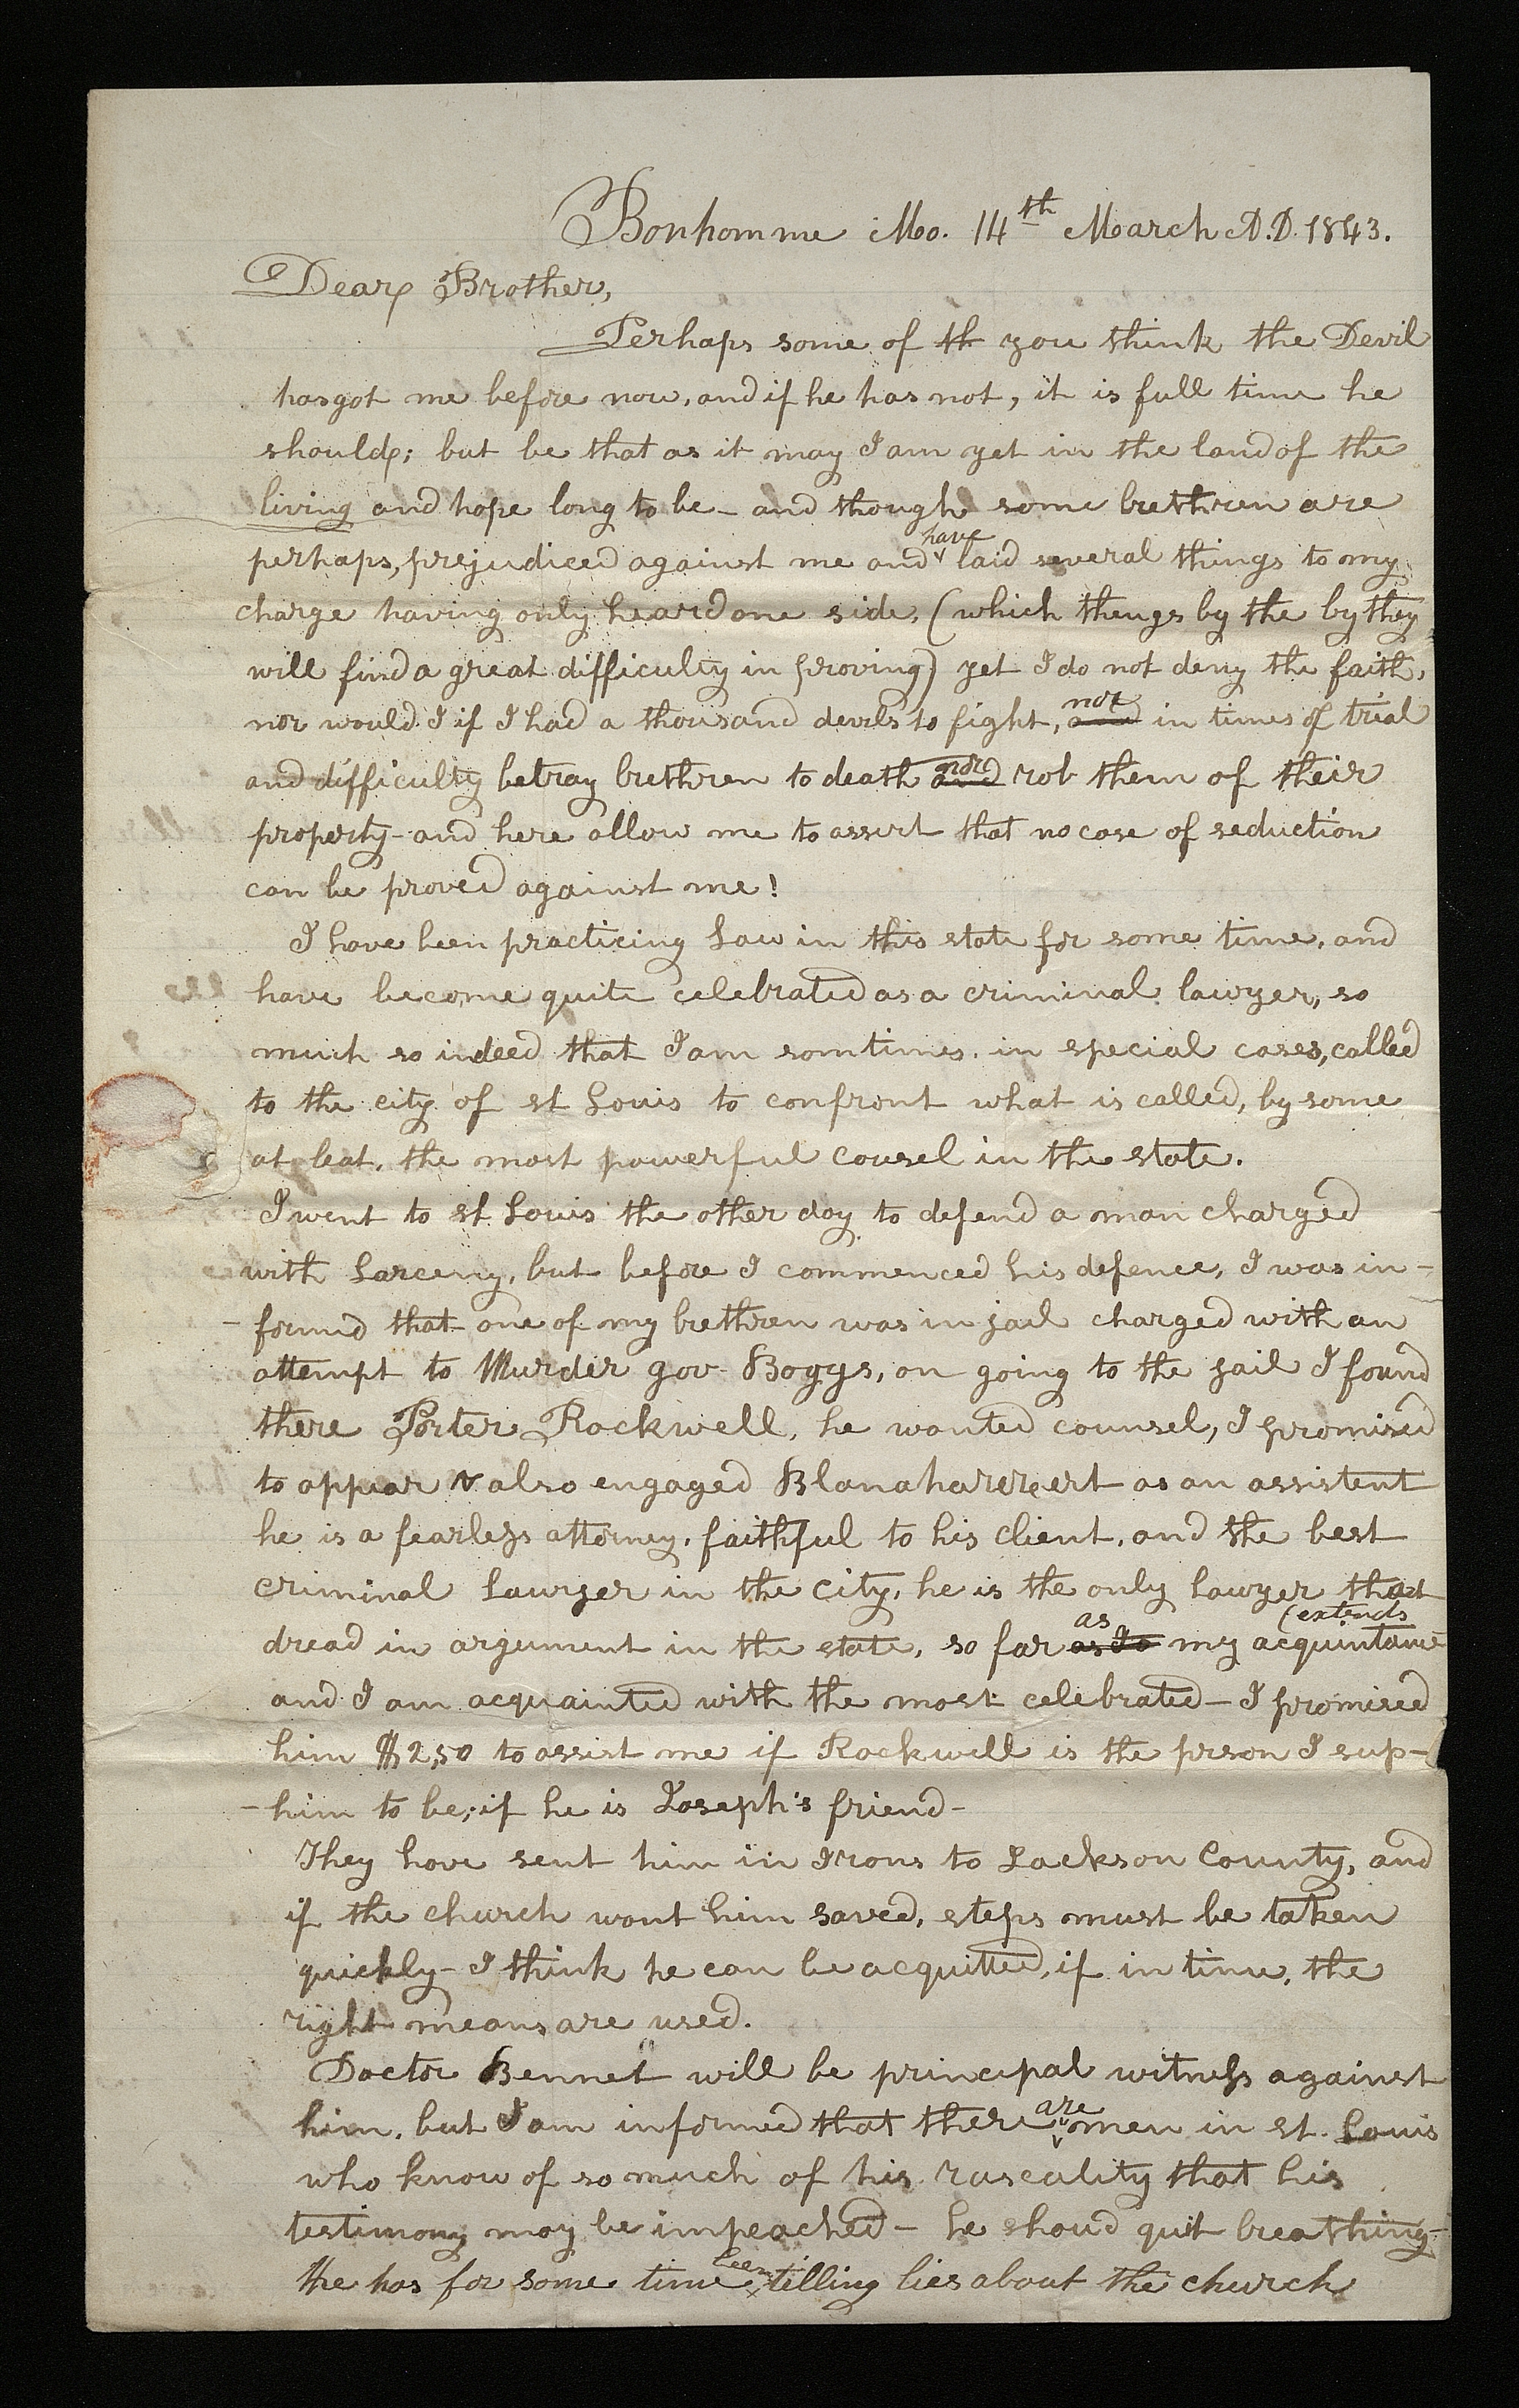 Bonhomme Mo. 14th March A.D. 1843.
Dear Brother,
Perhaps some of th you think the Devil
has got me before now, and if he has not, it is full time he
should; but be that as it may I am yet in the land of the
living and hope long to be – and though some brethren are
perhaps, prejudiced against me and have laid several things to my
charge having only heard one side, (which thengs by the by they
will find a great difficulty in proving) yet I do not deny the faith,
nor would I if I had a thousand devils to fight, and nor in times of trial
and difficulty betray brethren to death and nor rob them of their
property – and here allow me to assert that no case of seduction
can be proved against me!
I have been practicing Law in this state for some time, and
have become quite celebrated as a criminal lawyer, so
much so indeed that I am somtimes, in special cases, called
to the city of st Louis to confront what is called, by some
at leat, the most powerful cousel in the state.
I went to st Louis the other day to defend a man charged
with Larceny, but before I commenced his defence, I was in-
-formd that one of my brethren was in jail charged with an
attempt to Murder gov Boggs, on going to the jail I found
there Porter Rockwell, he wanted counsel, I promised
to appear & also engaged Blanaharrert as an assistent
he is a fearless attorney, faithful to his client, and the best
criminal Lawyer in the city, he is the only lawyer that
dread in argument in the state, so far as Io as my acquintance (extends
and I am acquainted with the most celebrated – I promised
him $2,50 to assist me if Rockwell is the prson I sup-
-him to be; if he is Joseph's friend –
They have sent him in Irons to Jackson County, and
if the church want him saved, steps must be taken
quickly – I think he can be acquitted, if in time, the
right means are used.
Doctor Bennet will be principal witness against
him, but I am informed that there are men in st. Louis
who know of so much of his rascality that his
testimony may be impeached – he shoud quit breathing –
He has for some time been telling lies about the church